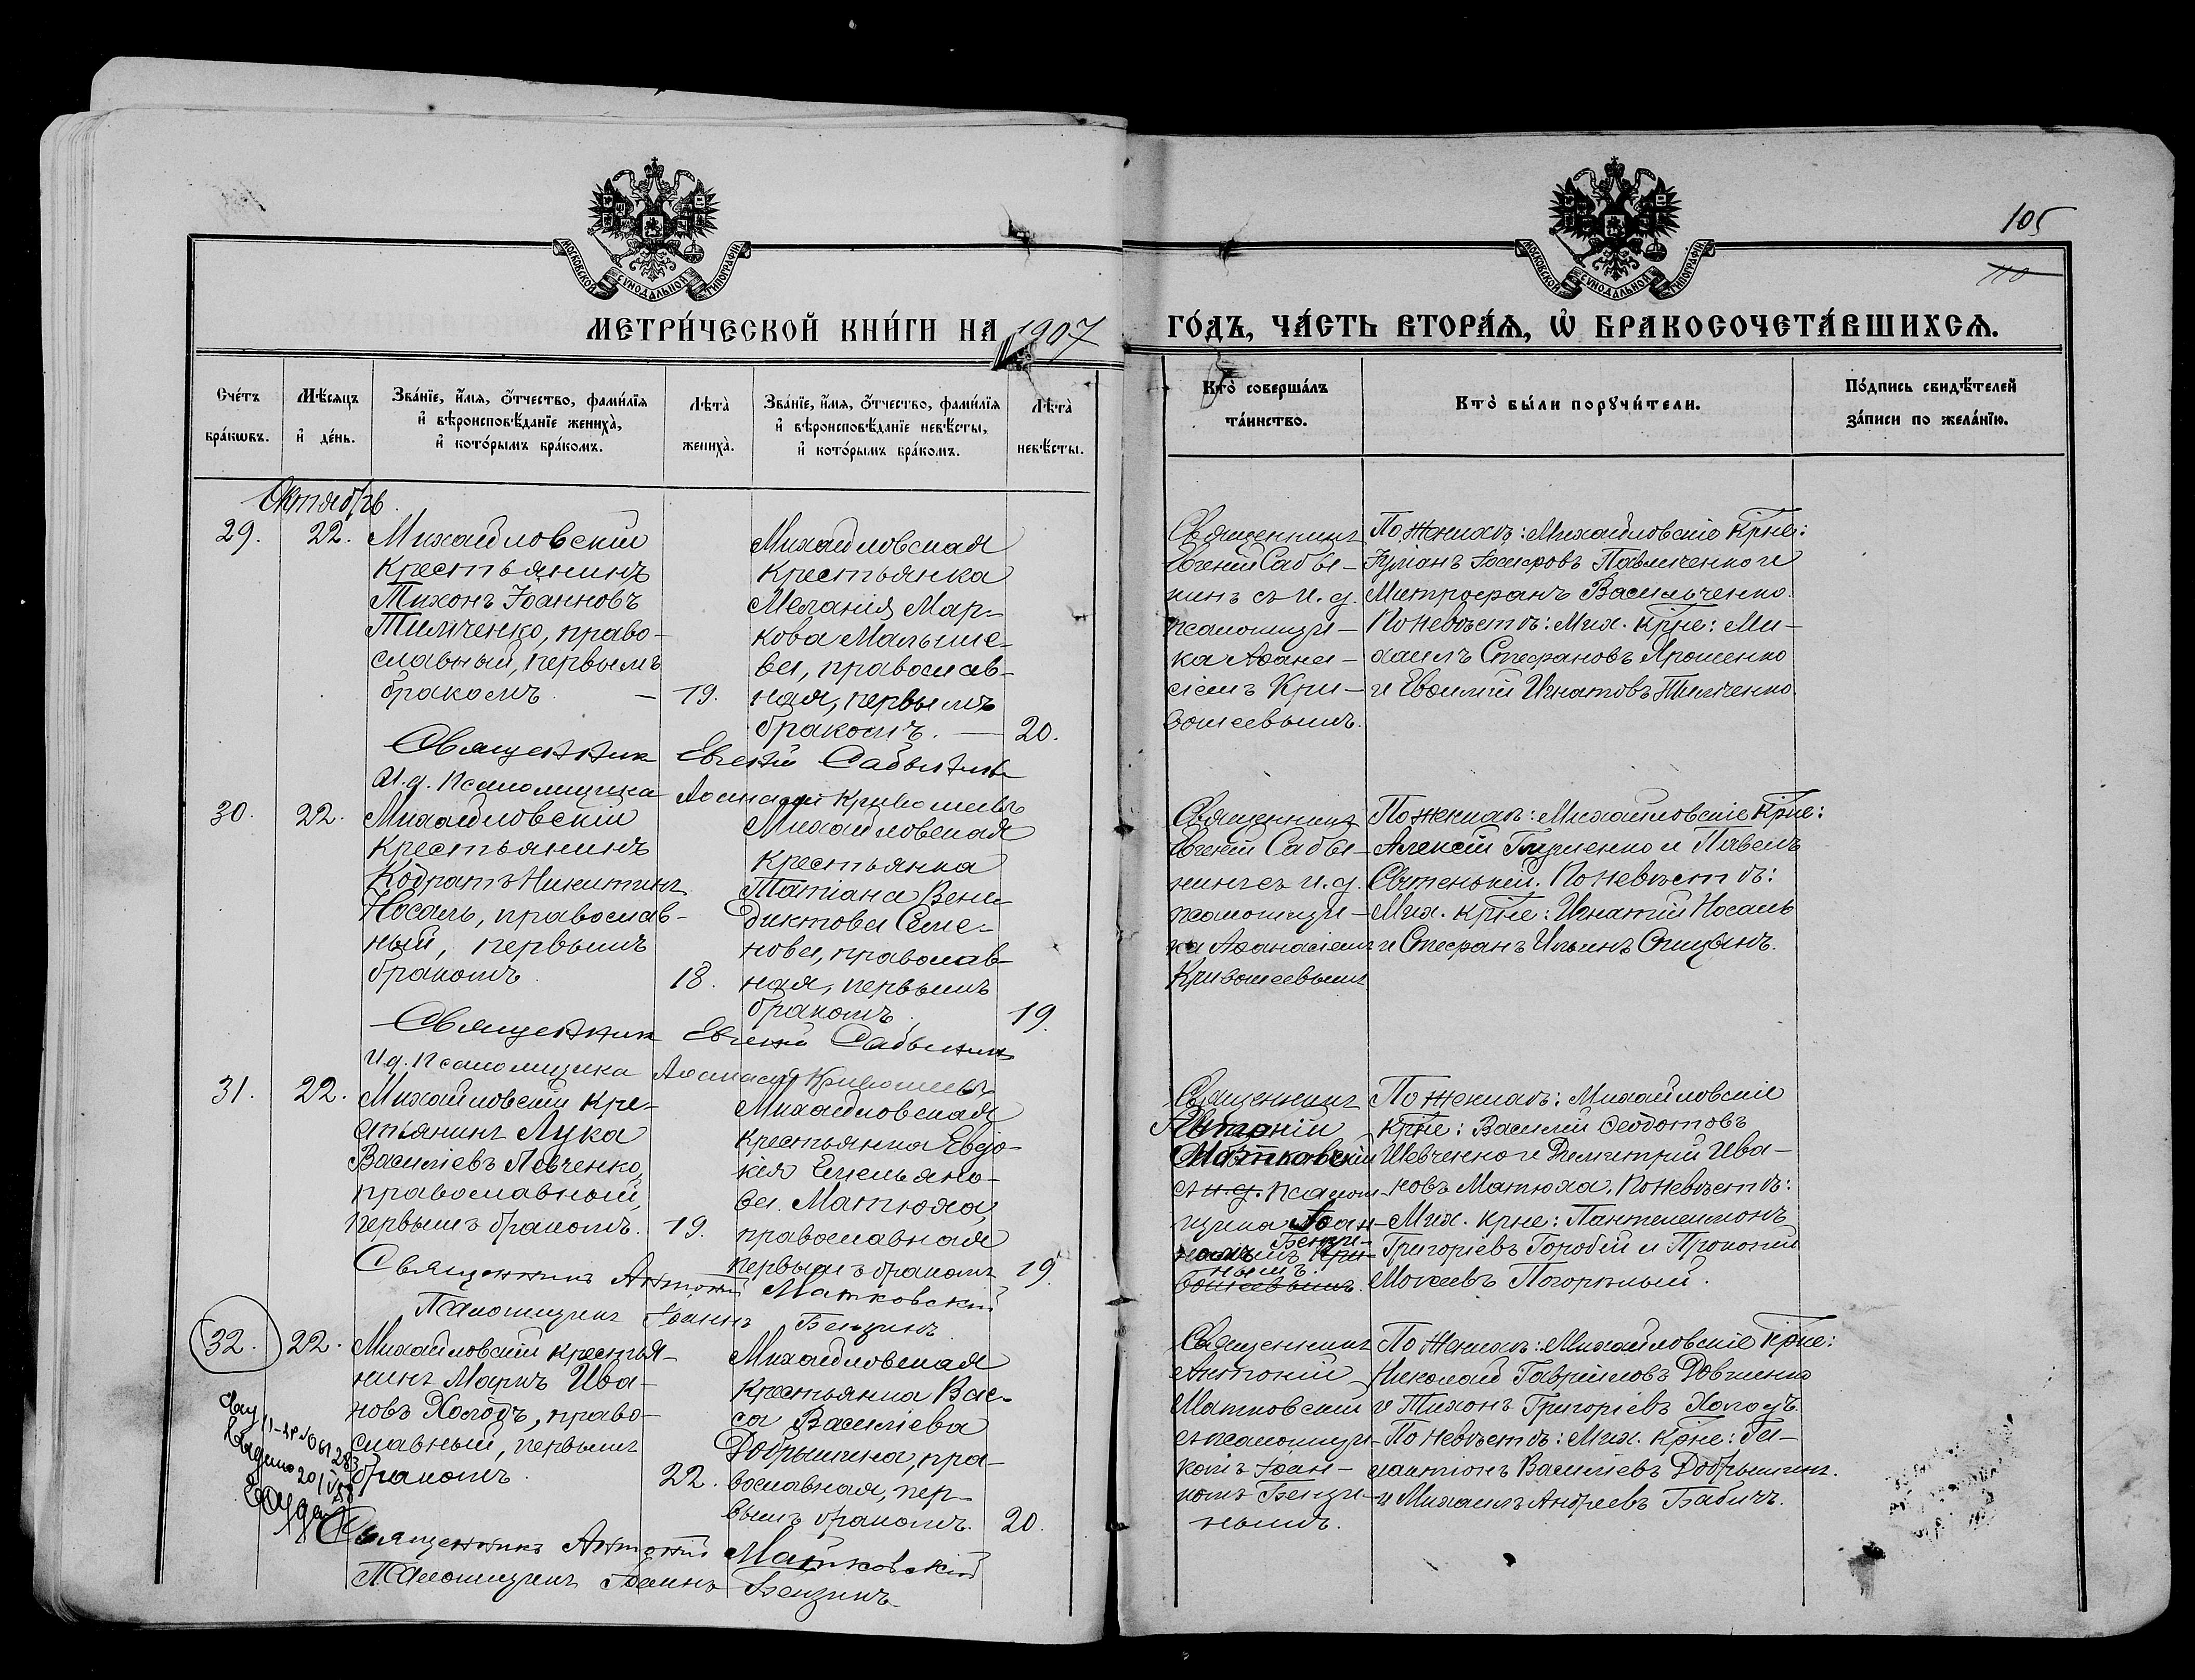 105
110
МОСКОВСКОЙ СѴНОДАЛЬНОЙ ТИПОГРАФІИ
МОСКОВСКОЙ СѴНОДАЛЬНОЙ ТИПОГРАФІИ
МЕТРИ́ЧЕСКОЙ КНИ́ГИ НА 1907 ГО́ДЪ, ЧА́СТЬ ВТОРА́Я, Ѡ҆ БРАКОСОЧЕТА́ВШИХСЯ.
Сче́тъ бра́кѡвъ.
Мѣ́сяцъ и҆ де́нь.
Зва́нїе, и҆́мя, ѻ҆́тчество, фами́лїя
и҆ вѣроисповѣ́данїе жениха̀,
и҆ кото́рымъ бра́комъ.
Лѣта̀ жениха̀.
Зва́нїе, и҆́мя, ѻ҆́тчество, фами́лїя
и҆ вѣроисповѣ́данїе невѣ́сты,
и҆ кото́рымъ бра́комъ.
Лѣта̀ невѣ́сты.
Кто̀ соверша́лъ
та́инство.
Кто̀ бы́ли порꙋчи́тели.
По́дпись свидѣ́телей
за́писи по жела́нїю.
Октябрь
29.
22.
Михайловскій
крестьянинъ
Тихонъ Іоанновъ
Тимченко, право-
славный, первымъ
бракомъ. —
19.
Михайловская
крестьянка
Меланія Мар-
кова Малыше-
ва, православ-
ная, первымъ
бракомъ. —
20.
Священникъ
Евгеній Сабы-
нинъ съ и.д.
псаломщи-
ка Аѳана-
сіемъ Кри-
вошеевымъ.
По женихѣ: Михайловскіе крне:
Іуліанъ Іосифовъ Павличенко и
Митрофанъ Васильченко.
По невѣстѣ: Мих. крне: Ми-
хаилъ Стефановъ Ярошенко
и Евѳимій Игнатовъ Тимченко.
Священник Евгеній Сабынинъ
И.д. псаломщика Аѳанасій Кривошеевъ
30.
22.
Михайловскій
крестьянинъ
Кодратъ Никитинъ
Носаль, православ-
ный, первымъ
бракомъ.
18.
Михайловская
крестьянка
Татіана Вени-
диктова Семе-
нова, православ-
ная, первымъ
бракомъ.
19.
Священникъ
Евгеній Сабы-
нинъ съ и.д.
псаломщи-
ка Аѳанасіемъ
Кривошеевымъ
По женихѣ: Михайловскіе крне:
Алексій Глущенко и Павелъ
Свтенькій. По невѣстѣ:
Мих. крне: Игнатій Носаль
и Стефанъ Ильинъ Спицынъ.
Священник Евгеній Сабынинъ
И.д. псаломщика Аѳанасій Кривошеевъ
31.
22.
Михайловскій кре-
стьянинъ Лука
Василіевъ Левченко,
православный,
первымъ бракомъ.
19.
Михайловская
крестьянка Евдо-
кія Емельяно-
ва Матюха,
православная
первымъ бракомъ
19.
Священникъ
Антоній
Матковскій
съ и.д. псалом-
щика Іоан-
номъ Бензи- Кри-
нымъ.
вошеевымъ.
По женихѣ: Михайловскіе
крне: Василій Ѳеодотовъ
Шевченко и Димитрій Ива-
новъ Матюха. По невѣстѣ:
Мих. крне: Пантелеимонъ
Григоріевъ Горобей и Прокопій
Мокеевъ Погорѣлый.
Священникъ Антоній Матковскій
Псаломщикъ Іоаннъ Бензинъ
32.
22.
Михайловскій крестья-
нинъ Маркъ Ива-
новъ Холодъ, право-
славный, первымъ
бракомъ.
22.
Михайловская
крестьянка Вас-
са Василіева
Добрынина, пра-
вославная, пер-
вымъ бракомъ.
20.
Священникъ
Антоній
Матковскій
съ псаломщи-
комъ Іоан-
номъ Бензи-
нымъ.
По женихѣ: Михайловскіе крне:
Николай Гавріиловъ Довженко
и Тихонъ Григоріевъ Холодъ.
По невѣстѣ: Мих. крне: Га-
лактіонъ Василіевъ Добрынинъ
и Михаилъ Андреевъ Бабичъ.
Священникъ Антоній Матковскій
Псаломщикъ Іоаннъ Бензинъ